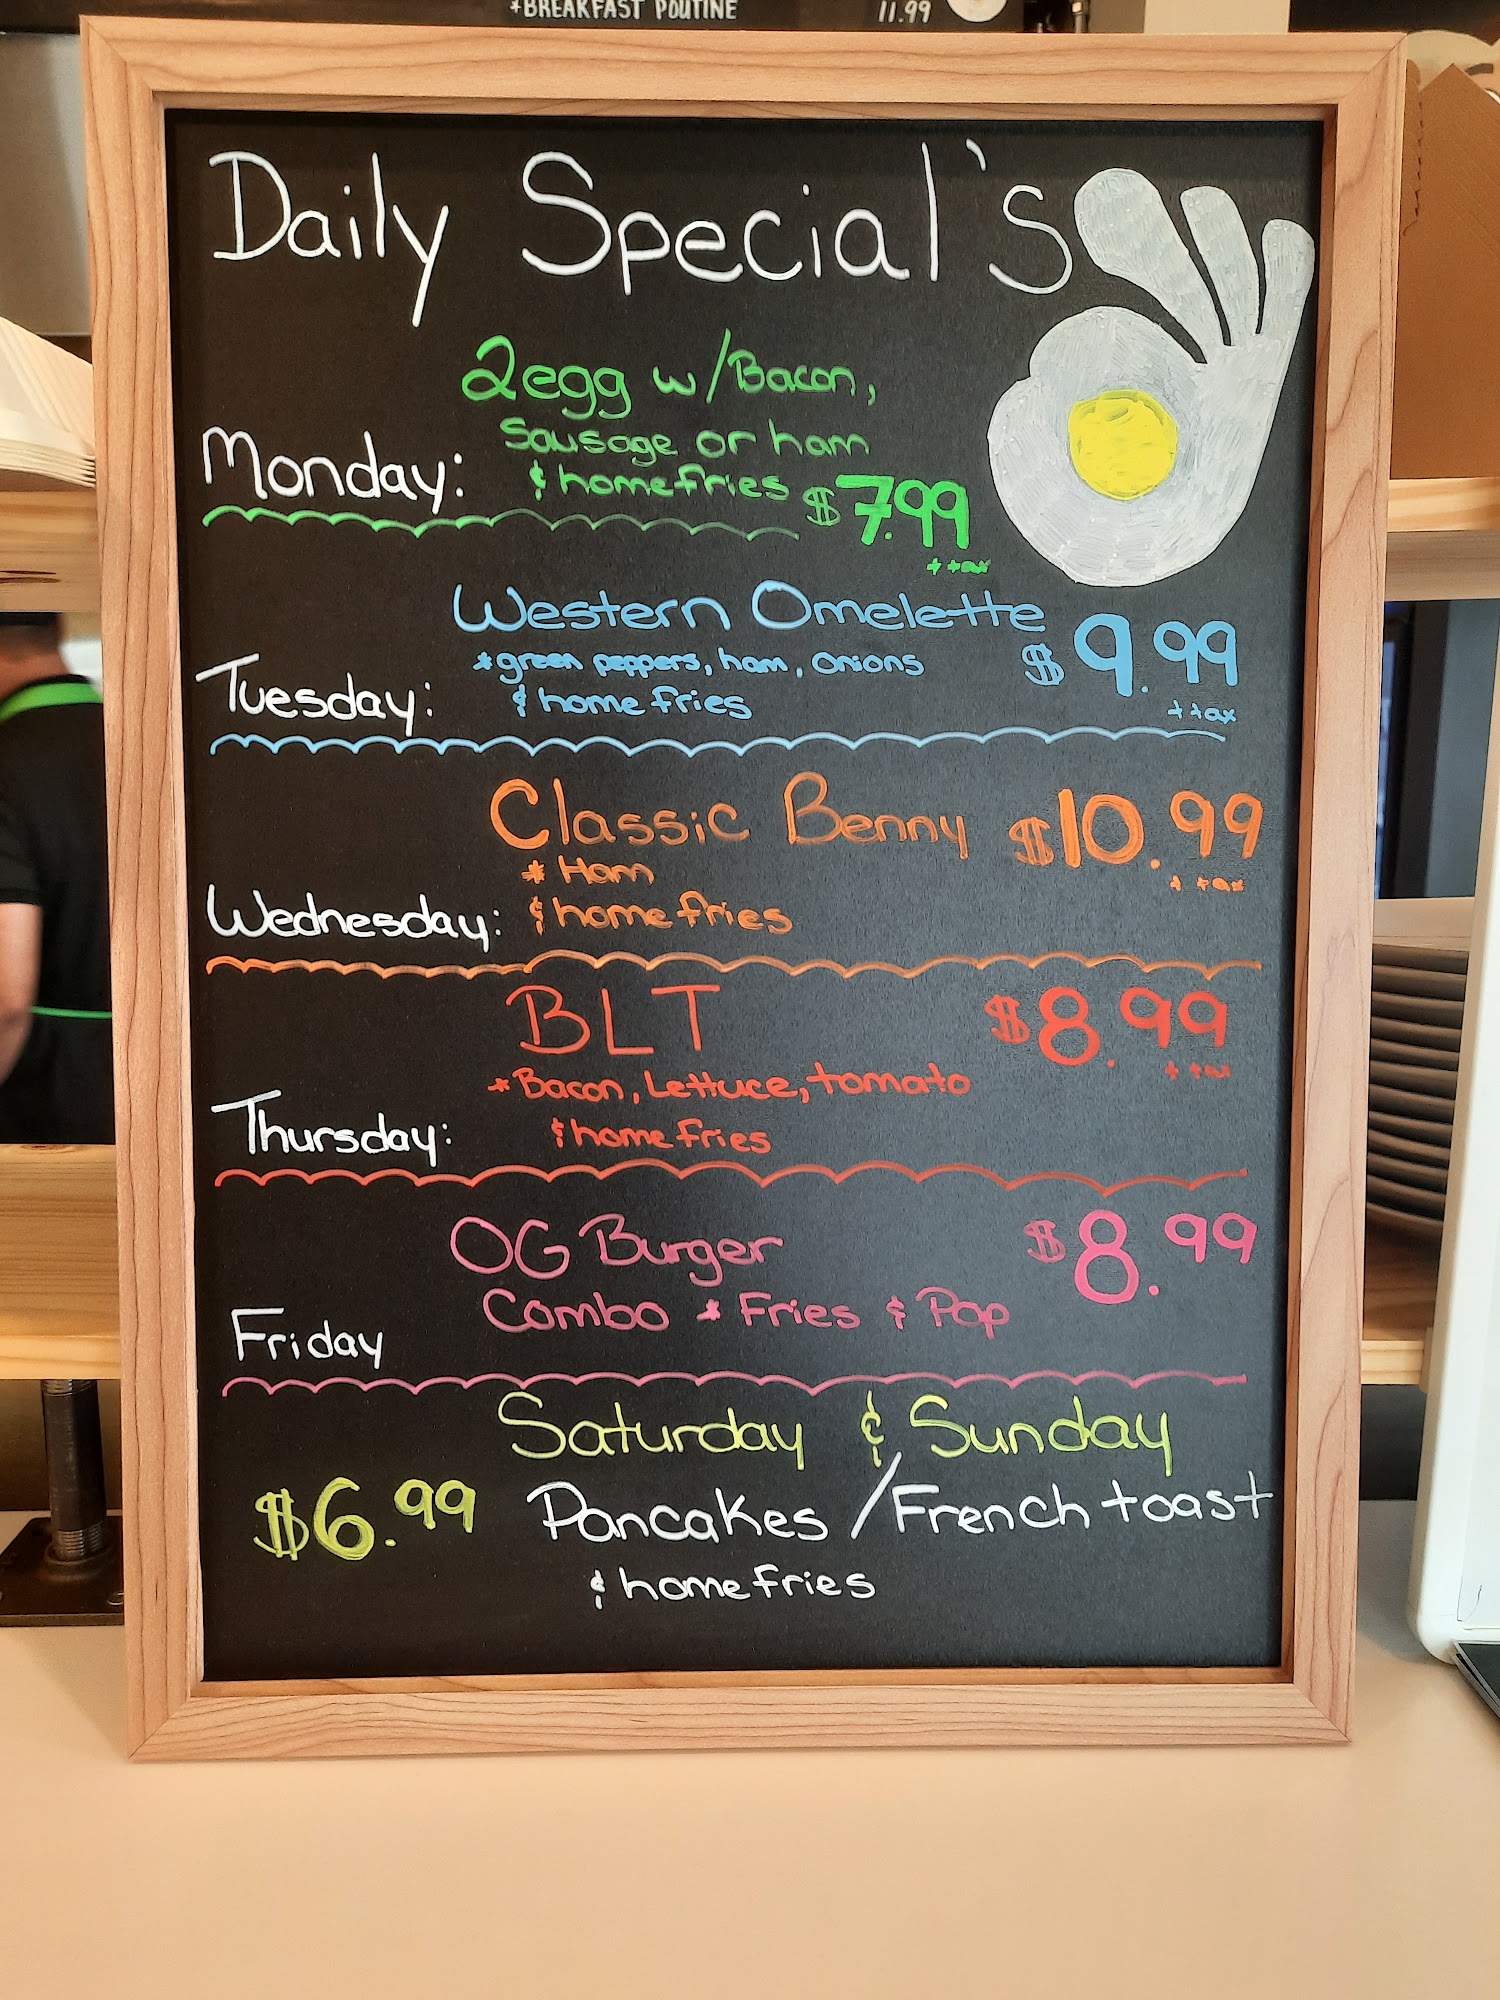 *BREAKFAST POUTINE 11.99
Daily Special's
2egg w/Bacon,
Sausage or ham
Monday: & homefries $7.99
+ tax
Western Omelette
*green peppers, ham, onions $9.99
Tuesday: & home fries + tax
Classic Benny $10.99
* Ham + tax
Wednesday: & home fries
BLT $8.99
*Bacon, Lettuce, tomato + tax
Thursday: & home fries
OG Burger $8.99
Combo * Fries & Pop
Friday
Saturday & Sunday
$6.99 Pancakes/French toast
& homefries